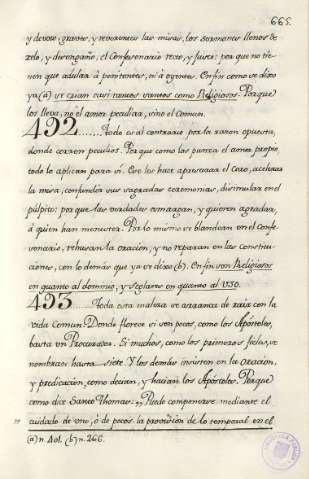 665.
y devoto, graves, y reverentes las misas, los sermones llenos de
zelo, y desengaño, el Confesonario recto, y justo: por que no tie-
nen que adular à penitentes, ni à oyentes. Enfin como se dixo
ya (a) se crian casi tantos santos como Religiosos. Porque
los lleva, no el amor peculiar, sino el Comun.
492...... Todo es al contrario por la razon opuesta,
donde corren peculios. Porque como les puntea el amor propio,
todo lo aplican para sì. Este les hace apresurar el Coro, acelerar
la misa, confundir sus sagradas ceremonias, disimular en el
pùlpito: por que las verdades amargan, y quieren agradar,
à quien han menester. Por lo mismo se blandean en el Confe-
sonario, rehusan la oracion, y no reparan en las Constitu-
ciones, con lo demàs que ya se dixo (b). Enfin son Religiosos
en quanto al dominio, y seglares en quanto al uso.
493 Toda esta maleza se arranca de raiz con la
vida Comun. Donde florece si son pocos, como los Apòstoles,
basta un Procurador. Si muchos, como los primeros fieles, se
nombran hasta siete. Y los demàs insisten en la oracion,
y predicacion, como decian, y hacian los Apòstoles. Porque
como dice Santo Thomas: "Puede compensarse mediante el
" cuidado de uno, ò de pocos la provision de lo temporal en el
(a) n. 401. (b) n. 266.